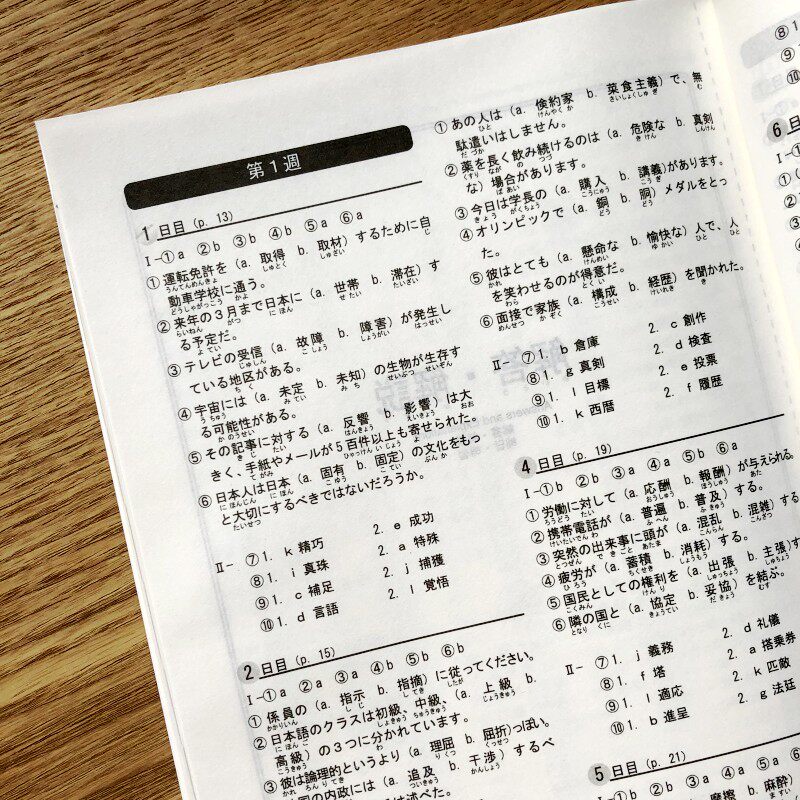 第1週
1日目 (p. 13)
I-①a ②b ③b ④b ⑤a ⑥a
①運転免許を（a. 取得 b. 取材）するために自
動車学校に通う。
②来年の3月まで日本に（a. 世帯 b. 滞在）す
る予定だ。
③テレビの受信（a. 故障 b. 障害）が発生し
ている地区がある。
④宇宙には（a. 未定 b. 未知）の生物が生存す
る可能性がある。
⑤その記事に対する（a. 反響 b. 影響）は大
きく、手紙やメールが5百件以上も寄せられた。
⑥日本人は日本（a. 固有 b. 固定）の文化をもっ
と大切にするべきではないだろうか。
II- ⑦1. k 精巧 2. e 成功
⑧1. i 真珠 2. a 特殊
⑨1. c 補足 2. j 捕獲
⑩1. d 言語 2. l 覚悟
2日目 (p. 15)
I-①a ②a ③a ④b ⑤b ⑥b
①係員の（a. 指示 b. 指摘）に従ってください。
②日本語のクラスは初級、中級、（a. 上級 b.
高級）の3つに分かれています。
③彼は論理的というより（a. 理屈 b. 屈折）っぽい。
国の内政には（a. 追及 b. 干渉）するべ
は述べた。
①あの人は（a. 倹約家 b. 菜食主義）で、無
駄遣いはしません。
②薬を長く飲み続けるのは（a. 危険な b. 真剣
な）場合があります。
③今日は学長の（a. 購入 b. 講義）があります。
④オリンピックで（a. 銅 b. 胴）メダルをとっ
た。
⑤彼はとても（a. 懸命な b. 愉快な）人で、人
を笑わせるのが得意だ。
⑥面接で家族（a. 構成 b. 経歴）を聞かれた。
II- ⑦1. b 倉庫 2. c 創作
⑧1. g 真剣 2. d 検査
⑨1. l 目標 2. e 投票
⑩1. k 西暦 2. f 履歴
4日目 (p. 19)
I-①b ②b ③a ④a ⑤b ⑥a
①労働に対して（a. 応酬 b. 報酬）が与えられる。
②携帯電話が（a. 普遍 b. 普及）する。
③突然の出来事に頭が（a. 混乱 b. 混雑）する
④疲労が（a. 蓄積 b. 消耗）する。
⑤国民としての権利を（a. 出張 b. 主張）す
⑥隣の国と（a. 協定 b. 妥協）を結ぶ。
II- ⑦1. j 義務 2. d 礼儀
⑧1. f 塔 2. a 搭乗券
⑨1. l 適応 2. k 匹敵
⑩1. b 進呈 2. g 法廷
5日目 (p. 21)
6日目